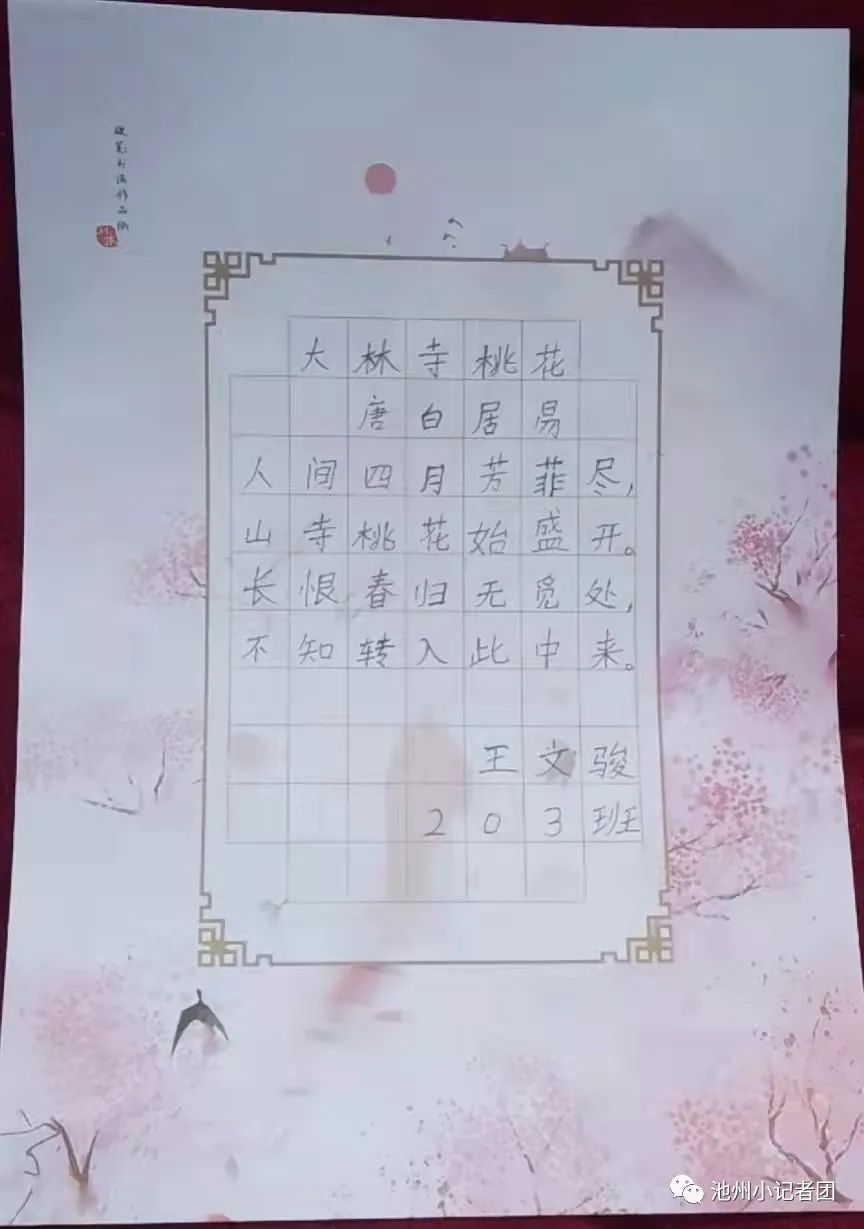 硬笔书法作品纸
大林寺桃花
唐白居易
人间四月芳菲尽，
山寺桃花始盛开。
长恨春归无觅处，
不知转入此中来。
王文骏
203班
池州小记者团